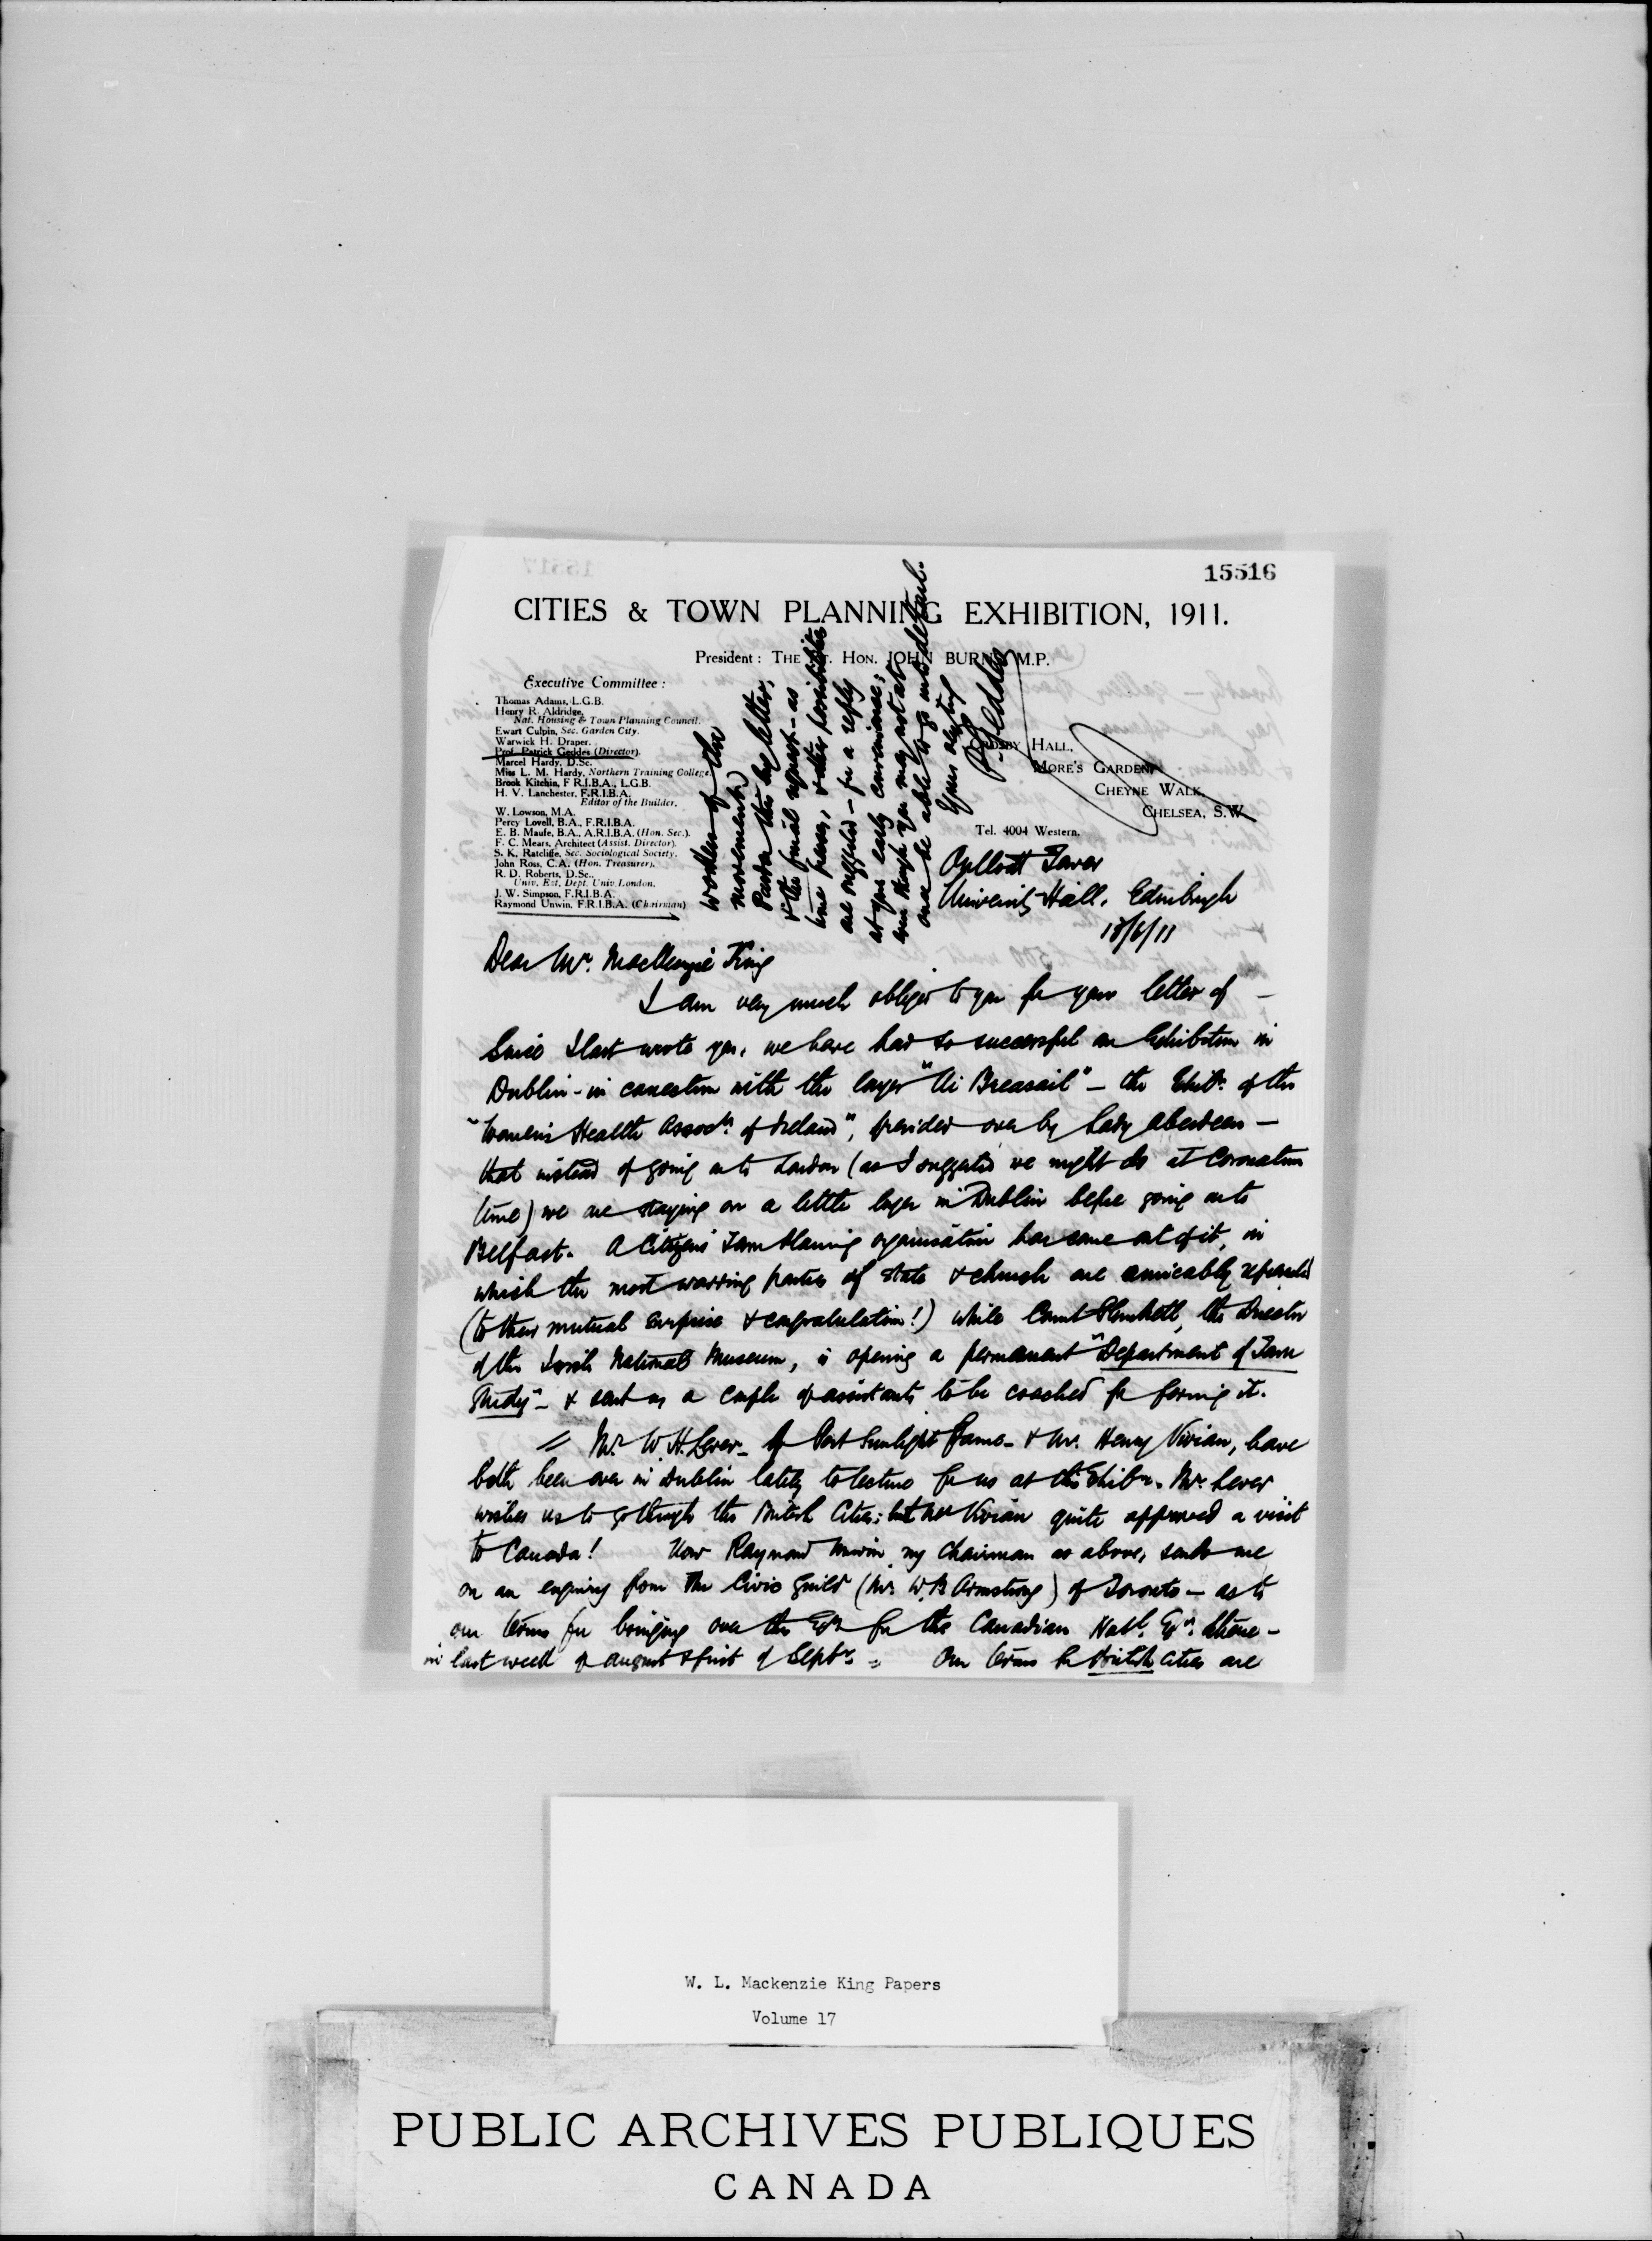 15516
CITIES & TOWN PLANNING EXHIBITION, 1911.
President: THE RT. HON. JOHN BURNS, M.P.
Executive Committee:
Thomas Adams, L.G.B.
Henry R. Aldridge,
Nat. Housing & Town Planning Council.
Ewart Culpin, Sec. Garden City.
Warwick H. Draper.
Prof. Patrick Geddes (Director).
Marcel Hardy, D.Sc.
Miss L. M. Hardy, Northern Training College.
Brook Kitchin, F.R.I.B.A., L.G.B.
H. V. Lanchester, F.R.I.B.A.
Editor of the Builder.
W. Lowson, M.A.
Percy Lovell, B.A., F.R.I.B.A.
E. B. Maufe, B.A., A.R.I.B.A. (Hon. Sec.).
F. C. Mears, Architect (Assist. Director).
S. K. Ratcliffe, Sec. Sociological Society.
John Ross, C.A. (Hon. Treasurer).
R. D. Roberts, D.Sc.,
Univ. Ext. Dept. Univ. London.
J. W. Simpson, F.R.I.B.A.
Raymond Unwin, F.R.I.B.A. (Chairman)
CROSBY HALL,
MORE'S GARDEN,
CHEYNE WALK,
CHELSEA, S.W.
Tel. 4004 Western.
Outlook Tower
University Hall, Edinburgh
18/6/11
Dear Mr. MacKenzie King
I am very much obliged to you for your letter of –
Since I last wrote you, we have had so successful an Exhibition in
Dublin – in connection with the larger "Ui Breasail" – the Exhibn. of the
"Women's Health Assocn. of Ireland", presided over by Lady Aberdeen –
that instead of going on to London (as I suggested we might do at Coronation
time) we are staying on a little longer in Dublin before going on to
Belfast. A Citizens' Town Planning organisation has come out of it, in
which the most warring parties of state & church are amicably
(to their mutual surprise & congratulation!) while Count Plunkett, the Director
of the Irish National Museum, is opening a permanent "Department of Town
Study" – & sent us a couple of assistants to be coached for forming it.
Mr. W. H. Lever – of Port Sunlight fame – & Mr. Henry Vivian, have
both been over in Dublin lately to lecture for us at this Exhibn. Mr. Lever
wishes us to go through the British Cities; but Mr Vivian quite approved a visit
to Canada! Now Raymond Unwin, my chairman as above, sends me
on an enquiry from The Civic Guild (Mr. W. B. Armstrong) of Toronto – as to
our terms for bringing over the Exn for the Canadian Natl. Exn. there –
in last week of August & first of Septr. Our terms for British Cities are
worthy of the
movement)
Pardon this long letter,
& this final request – as
time presses, & other possibilities
are suggested – for a reply
at your early convenience;
even though you may not at
once be able to go into detail.
Yours
P. Geddes
W. L. Mackenzie King Papers
Volume 17
PUBLIC ARCHIVES PUBLIQUES
CANADA